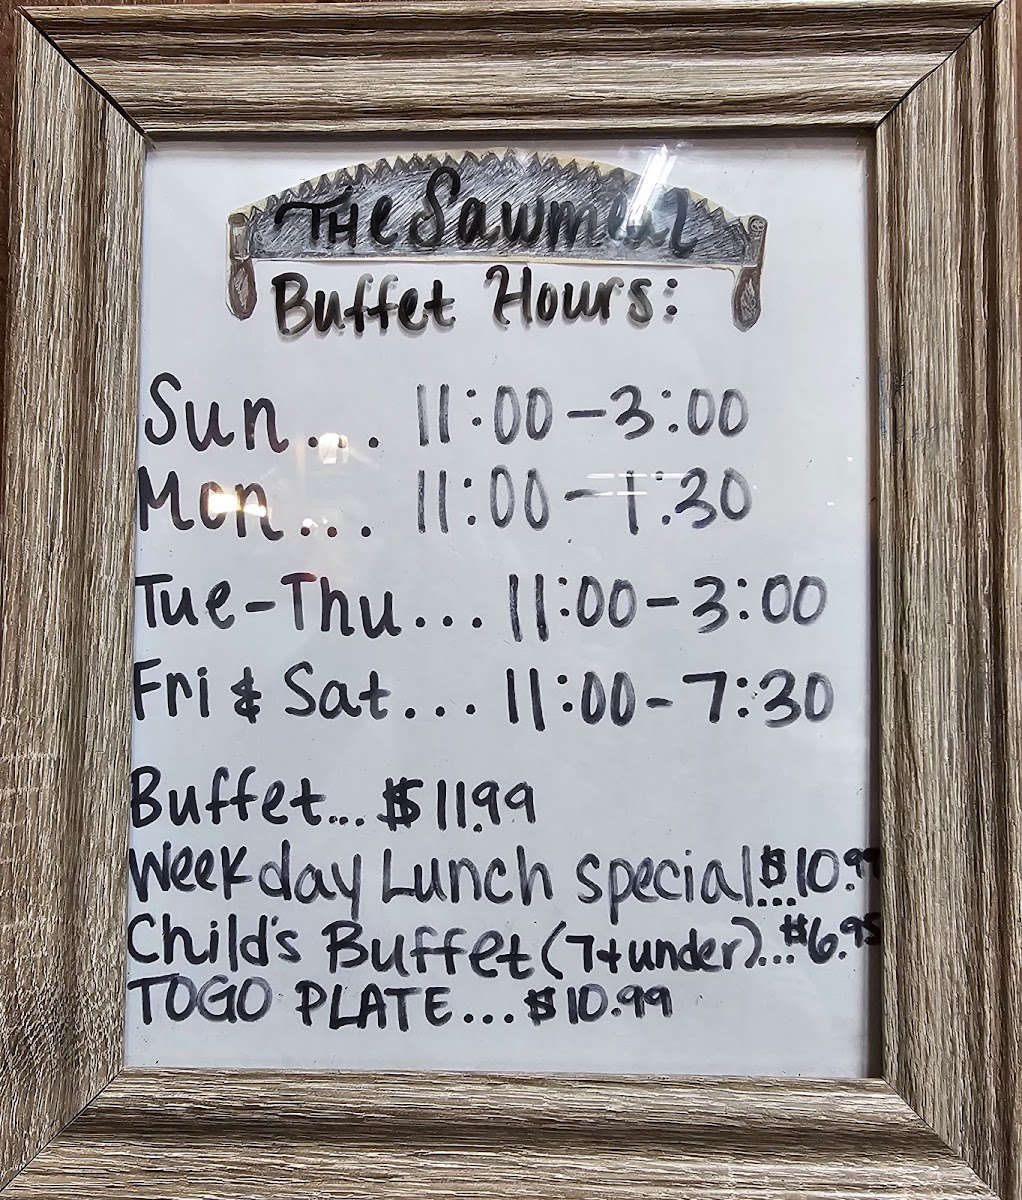 THe Sawmeal
Buffet Hours:
Sun... 11:00-3:00
Mon... 11:00-1:30
Tue-Thu... 11:00-3:00
Fri & Sat... 11:00-7:30
Buffet... $11.99
Weekday Lunch special...$10.99
Child's Buffet (7+under)...$6.95
TOGO PLATE... $10.99